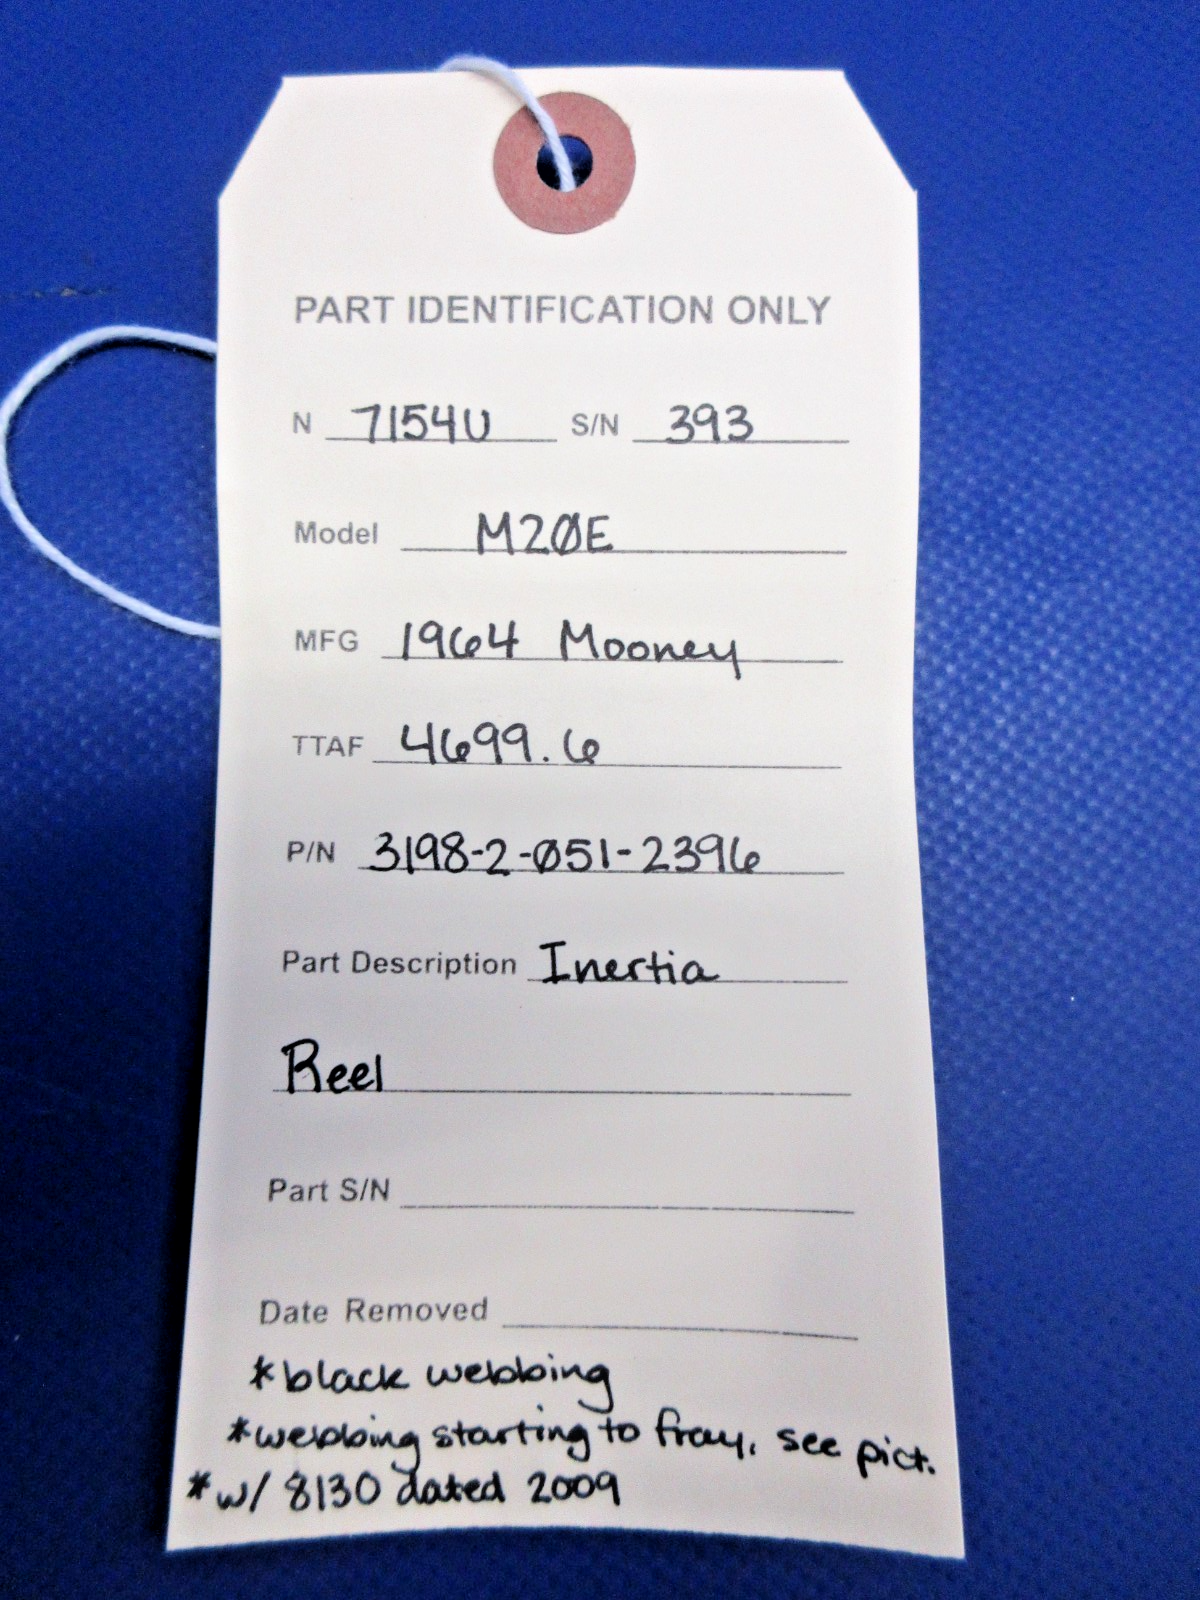 PART IDENTIFICATION ONLY
N 7154U S/N 393
Model M20E
MFG 1964 Mooney
TTAF 4699.6
P/N 3198-2-051-2396
Part Description Inertia
Reel
Part S/N
Date Removed
*black webbing
*webbing starting to fray, see pict.
*w/ 8130 dated 2009